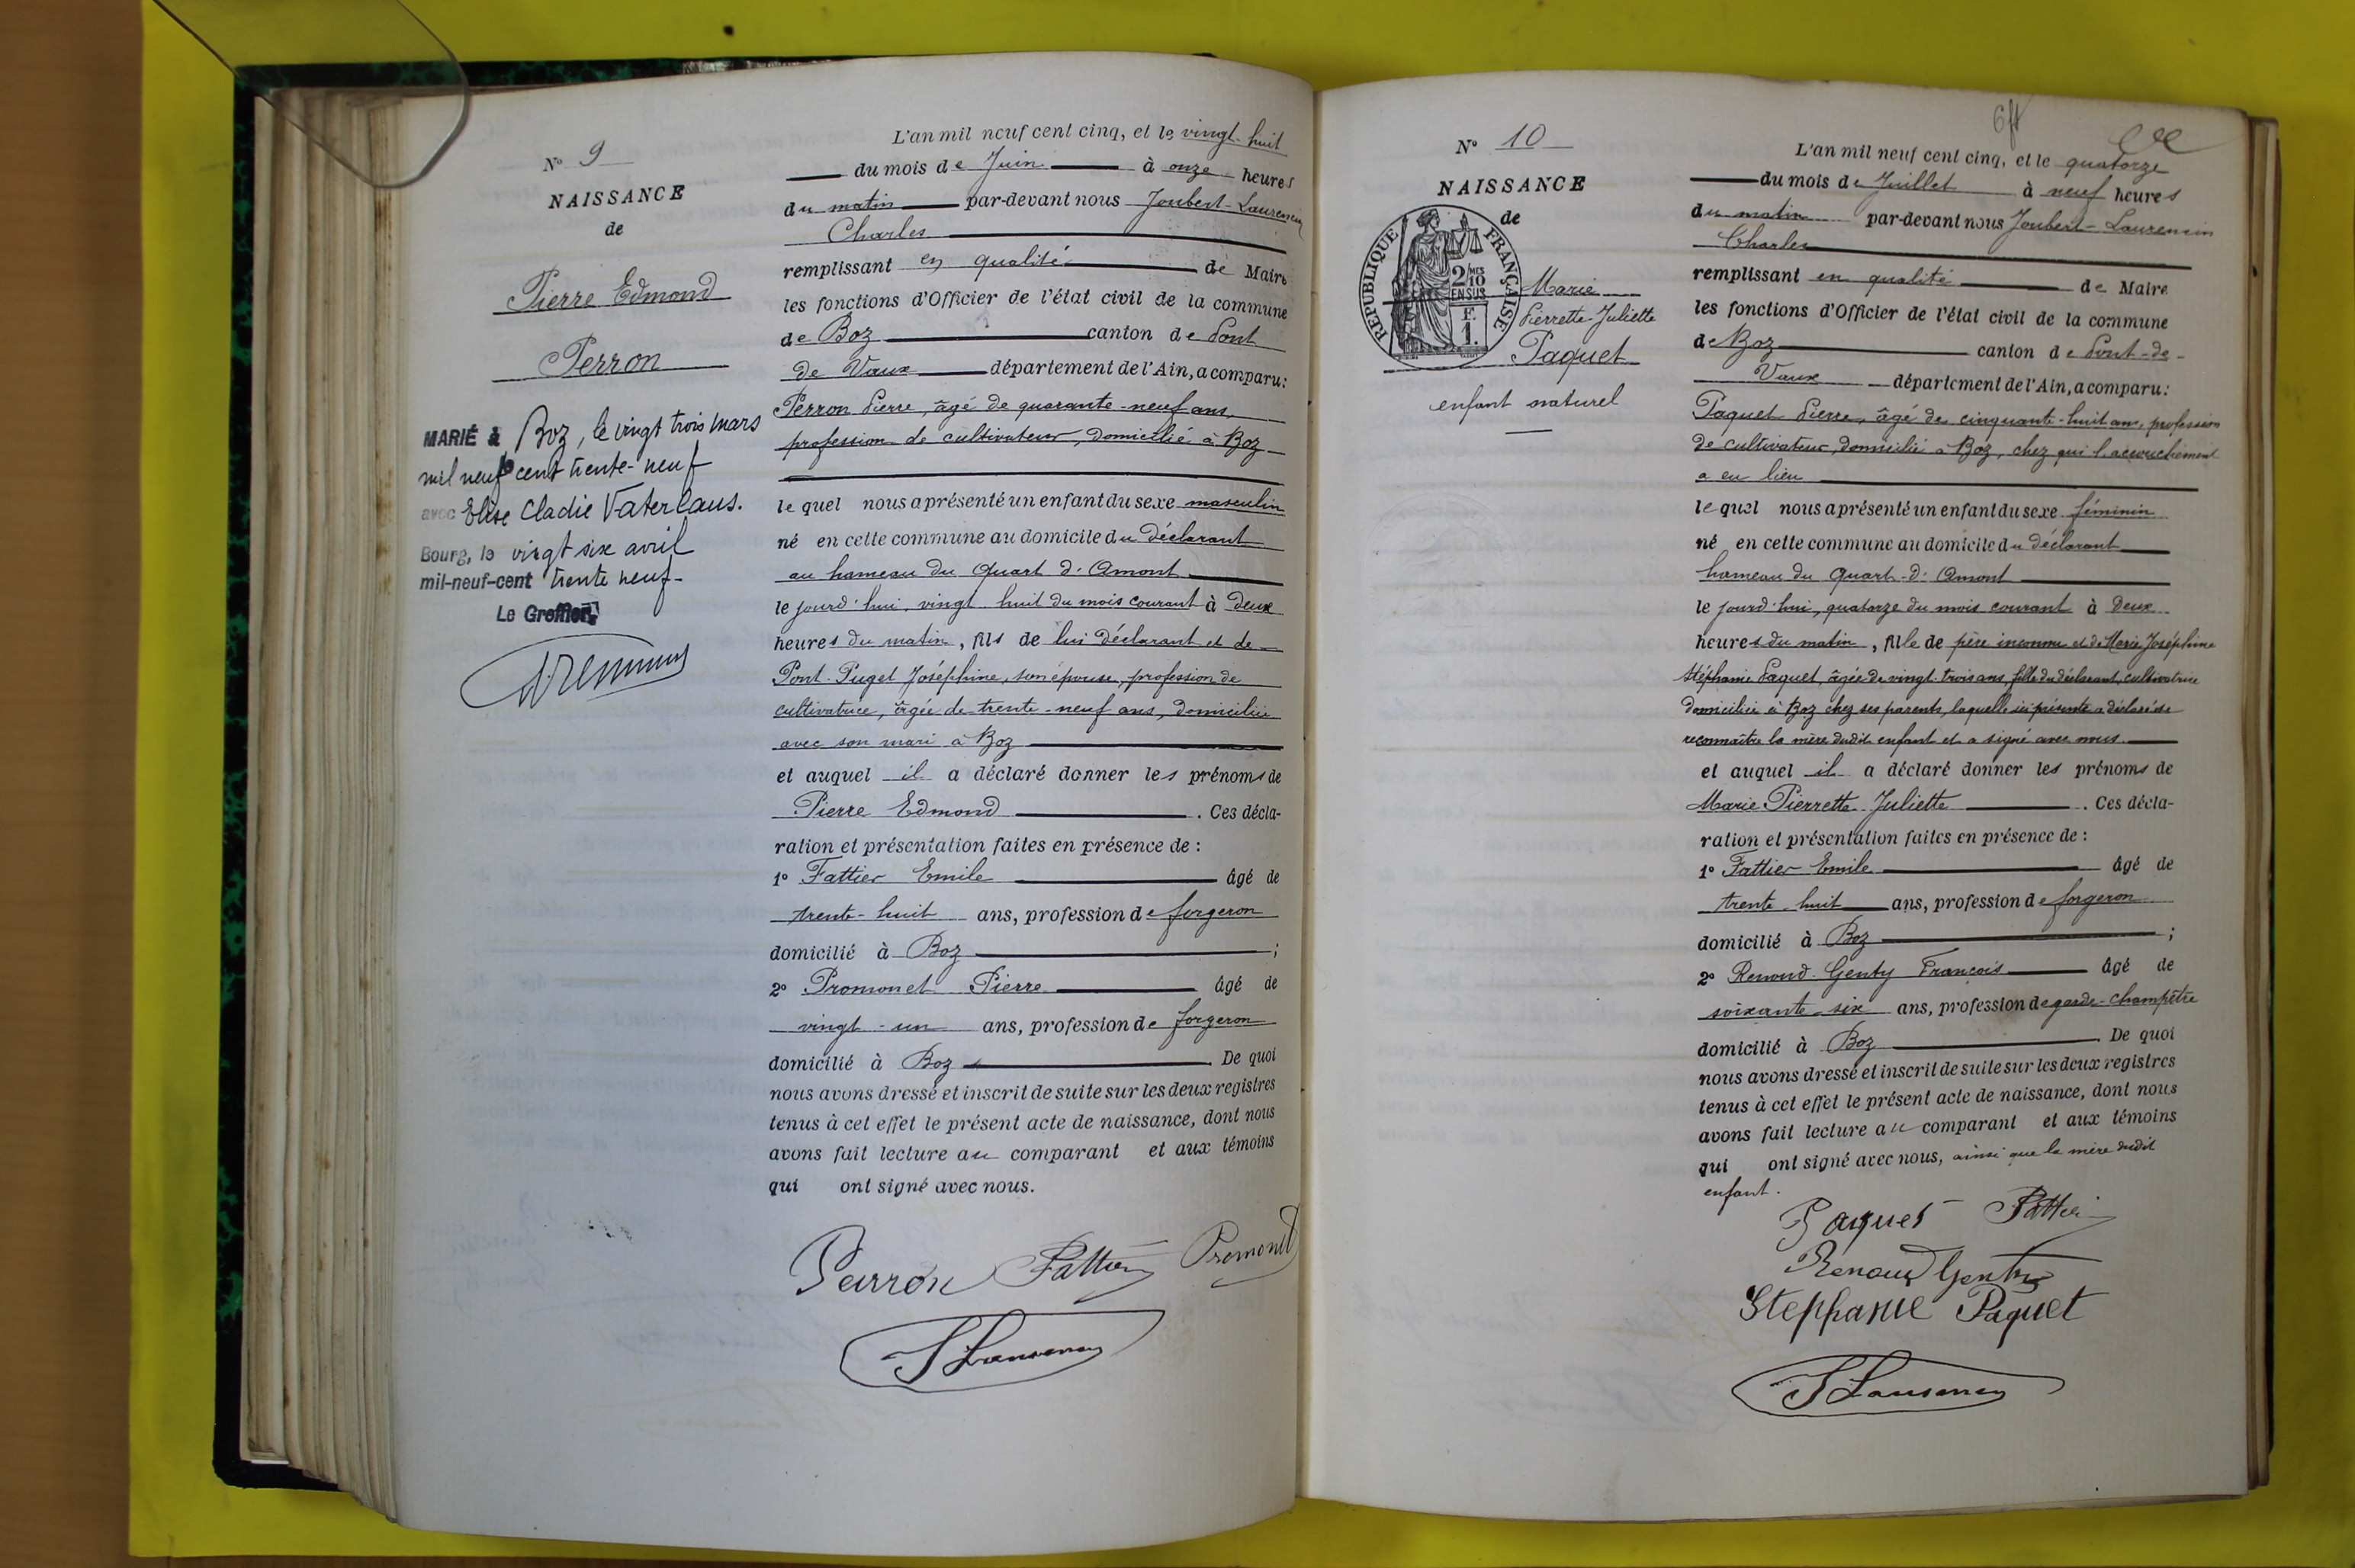 N° 9
NAISSANCE
de
Pierre Edmond
Perron
MARIÉ à Boz, le vingt trois mars
mil neuf cent trente-neuf
avec Elise Cladie Vaterlaus.
Bourg, le vingt six avril
mil-neuf-cent trente neuf-
Le Greffier,
L'an mil neuf cent cinq, et le vingt-huit
du mois de Juin à onze heures
du matin par-devant nous Joubert-Laurencin
Charles
remplissant en qualité de Maire
les fonctions d'Officier de l'état civil de la commune
de Boz canton de Pont
de Vaux département de l'Ain, a comparu:
Perron Pierre, âgé de quarante-neuf ans,
profession de cultivateur, domicilié à Boz
le quel nous a présenté un enfant du sexe masculin
né en cette commune au domicile du déclarant
au hameau du Quart d'Amont
le jourd'hui, vingt huit du mois courant à deux
heures du matin, fils de lui déclarant et de
Pont-Puget Joséphine, son épouse, profession de
cultivatrice, âgée de trente-neuf ans, domiciliée
avec son mari à Boz
et auquel il a déclaré donner les prénoms de
Pierre Edmond. Ces décla-
ration et présentation faites en présence de :
1° Fattier Emile âgé de
trente-huit ans, profession de forgeron
domicilié à Boz ;
2° Promonet Pierre âgé de
vingt-un ans, profession de forgeron
domicilié à Boz. De quoi
nous avons dressé et inscrit de suite sur les deux registres
tenus à cet effet le présent acte de naissance, dont nous
avons fait lecture au comparant et aux témoins
qui ont signé avec nous.
Perron Fattier Promonet
JLaurencin
N° 10
NAISSANCE
de
RÉPUBLIQUE FRANÇAISE
2/MES
10
EN SUS
F.
1.
Marie
Pierrette-Juliette
Paquet
enfant naturel
L'an mil neuf cent cinq, et le quatorze
du mois de Juillet à neuf heures
du matin par-devant nous Joubert-Laurencin
Charles
remplissant en qualité de Maire
les fonctions d'Officier de l'état civil de la commune
de Boz canton de Pont-de-
Vaux département de l'Ain, a comparu:
Paquet Pierre, âgé de cinquante-huit ans, profession
de cultivateur, domicilié à Boz, chez qui l'accouchement
a eu lieu
le quel nous a présenté un enfant du sexe féminin
né en cette commune au domicile du déclarant
hameau du Quart-d'Amont
le jourd'hui, quatorze du mois courant à deux
heures du matin, fille de père inconnu et de Marie Joséphine
Stéphanie Paquet, âgée de vingt-trois ans, fille du déclarant, cultivatrice
domiciliée à Boz chez ses parents, laquelle ici présente a déclaré se
reconnaître la mère dudit enfant et a signé avec nous.
et auquel il a déclaré donner les prénoms de
Marie Pierrette Juliette. Ces décla-
ration et présentation faites en présence de :
1° Fattier Emile âgé de
trente-huit ans, profession de forgeron
domicilié à Boz ;
2° Renoud-Genty François âgé de
soixante-six ans, profession de garde-champêtre
domicilié à Boz. De quoi
nous avons dressé et inscrit de suite sur les deux registres
tenus à cet effet le présent acte de naissance, dont nous
avons fait lecture au comparant et aux témoins
qui ont signé avec nous, ainsi que la mère dudit
enfant.
Paquet Fattier
Renoud Genty
Stephanie Paquet
JLaurencin